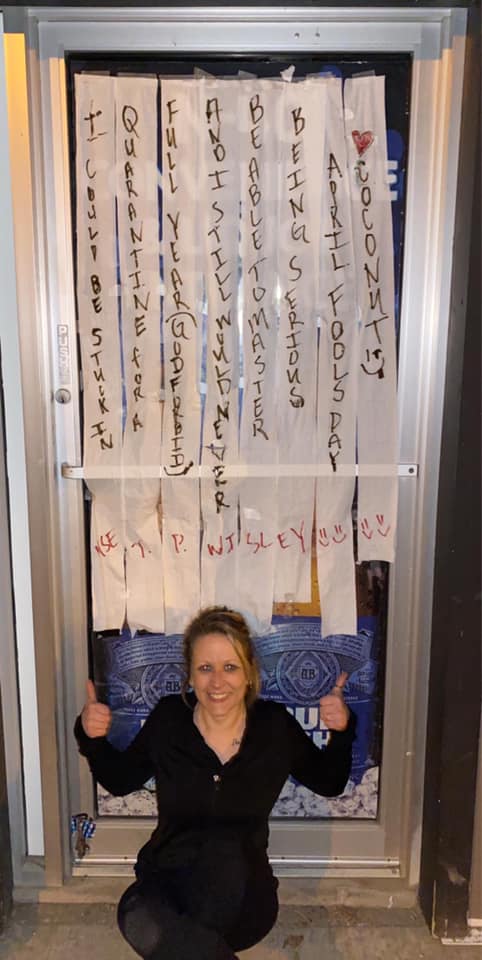 I COULD BE STUCK IN
QUARANTINE FOR A
FULL YEAR (GOD FORBID)
AND I STILL WOULD NEVER
BE ABLE TO MASTER
BEING SERIOUS
APRIL FOOLS DAY
♥ COCONUT :)
USE T. P. WISLEY
PUSH
AB
AB